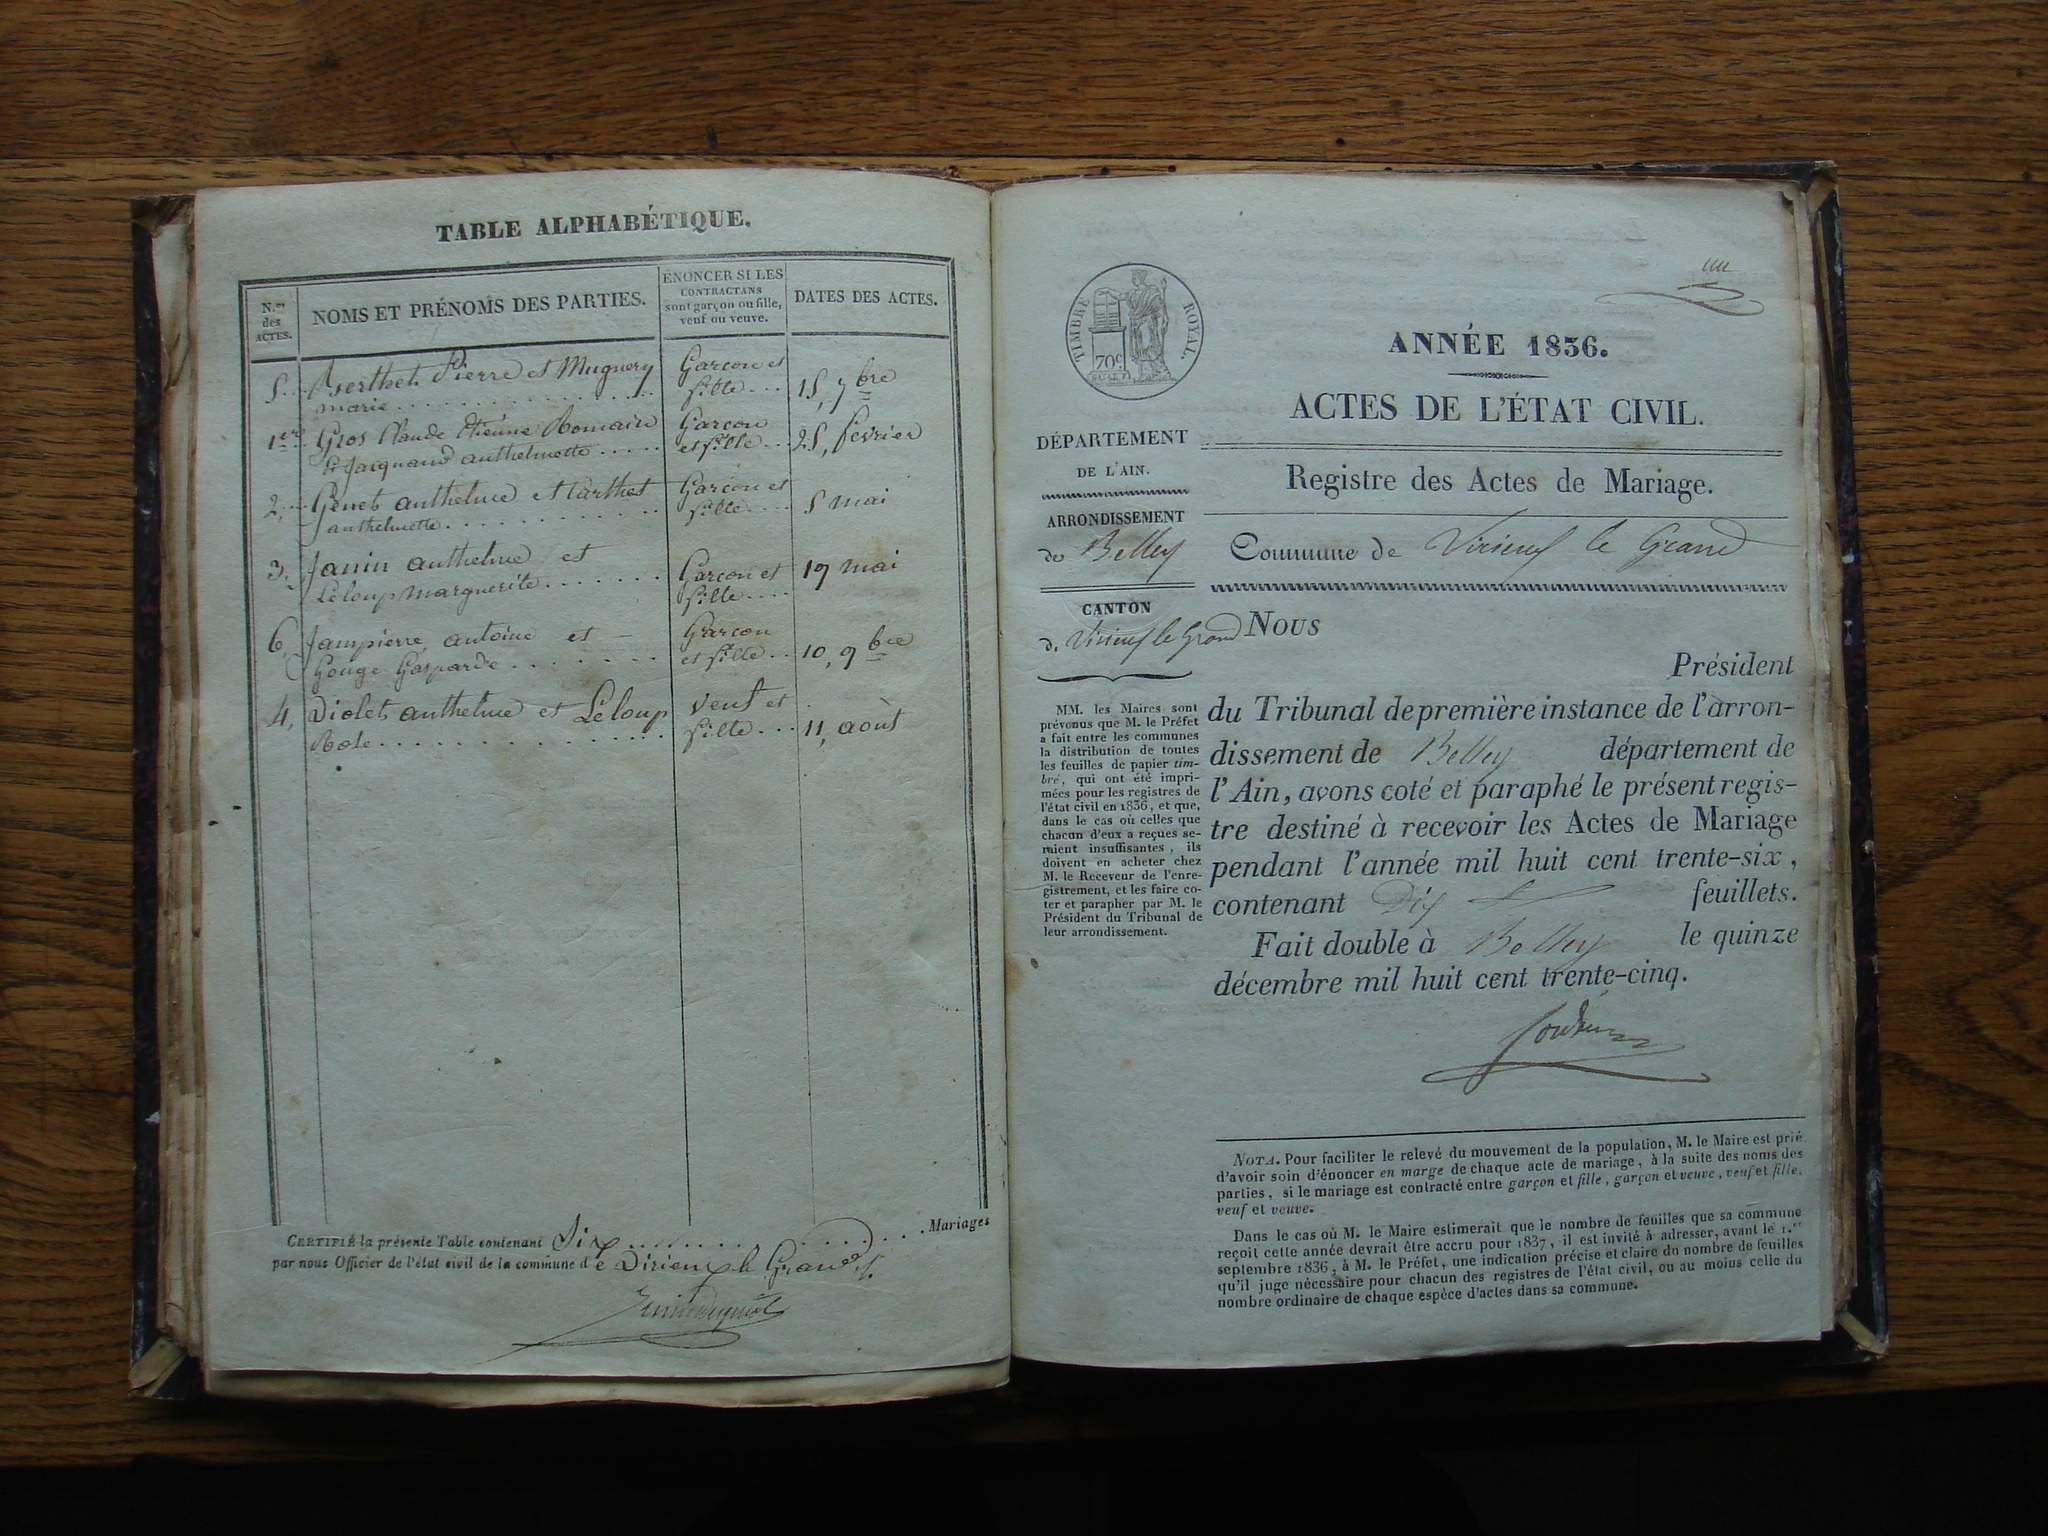 TABLE ALPHABÉTIQUE.
N.os des ACTES.
NOMS ET PRÉNOMS DES PARTIES.
ÉNONCER SI LES
CONTRACTANS
sont garçon ou fille,
veuf ou veuve.
DATES DES ACTES.
5... Berthet Pierre et Mugnery
marie
Garcon et
fille...
15, 7bre
1er Gros Claude Etienne Romain
et Jacquand anthelmette
Garcon
et fille
25, fevrier
2, Genet anthelme et
anthelmette
Garcon et
fille
5 mai
3, Janin anthelme et
Leloup marguerite
Garcon et
fille
19 mai
6, Jampierre antoine et
Gouge Gasparde
Garcon
et fille
10, 9bre
4, Violet anthelme et Leloup
Rose
veuf et
fille
11, août
CERTIFIÉ la présente Table contenant Six Mariages
par nous Officier de l'état civil de la commune de Virieux le Grand
TIMBRE ROYAL.
70c
ANNÉE 1836.
ACTES DE L'ÉTAT CIVIL.
Registre des Actes de Mariage.
Commune de Virieux le Grand
DÉPARTEMENT
DE L'AIN.
ARRONDISSEMENT
de Belley
CANTON
d. Virieux le Grand
MM. les Maires sont
prévenus que M. le Préfet
a fait entre les communes
la distribution de toutes
les feuilles de papier tim-
bré, qui ont été impri-
mées pour les registres de
l'état civil en 1836, et que,
dans le cas où celles que
chacun d'eux a reçues se-
raient insuffisantes, ils
doivent en acheter chez
M. le Receveur de l'enre-
gistrement, et les faire co-
ter et parapher par M. le
Président du Tribunal de
leur arrondissement.
NOUS
Président
du Tribunal de première instance de l'arron-
dissement de Belley département de
l'Ain, avons coté et paraphé le présent regis-
tre destiné à recevoir les Actes de Mariage
pendant l'année mil huit cent trente-six,
contenant Dix feuillets.
Fait double à Belley le quinze
décembre mil huit cent trente-cinq.
NOTA. Pour faciliter le relevé du mouvement de la population, M. le Maire est prié
d'avoir soin d'énoncer en marge de chaque acte de mariage, à la suite des noms des
parties, si le mariage est contracté entre garçon et fille, garçon et veuve, veuf et fille,
veuf et veuve.
Dans le cas où M. le Maire estimerait que le nombre de feuilles que sa commune
reçoit cette année devrait être accru pour 1837, il est invité à adresser, avant le 1.er
septembre 1836, à M. le Préfet, une indication précise et claire du nombre de feuilles
qu'il juge nécessaire pour chacun des registres de l'état civil, ou au moins celle du
nombre ordinaire de chaque espèce d'actes dans sa commune.